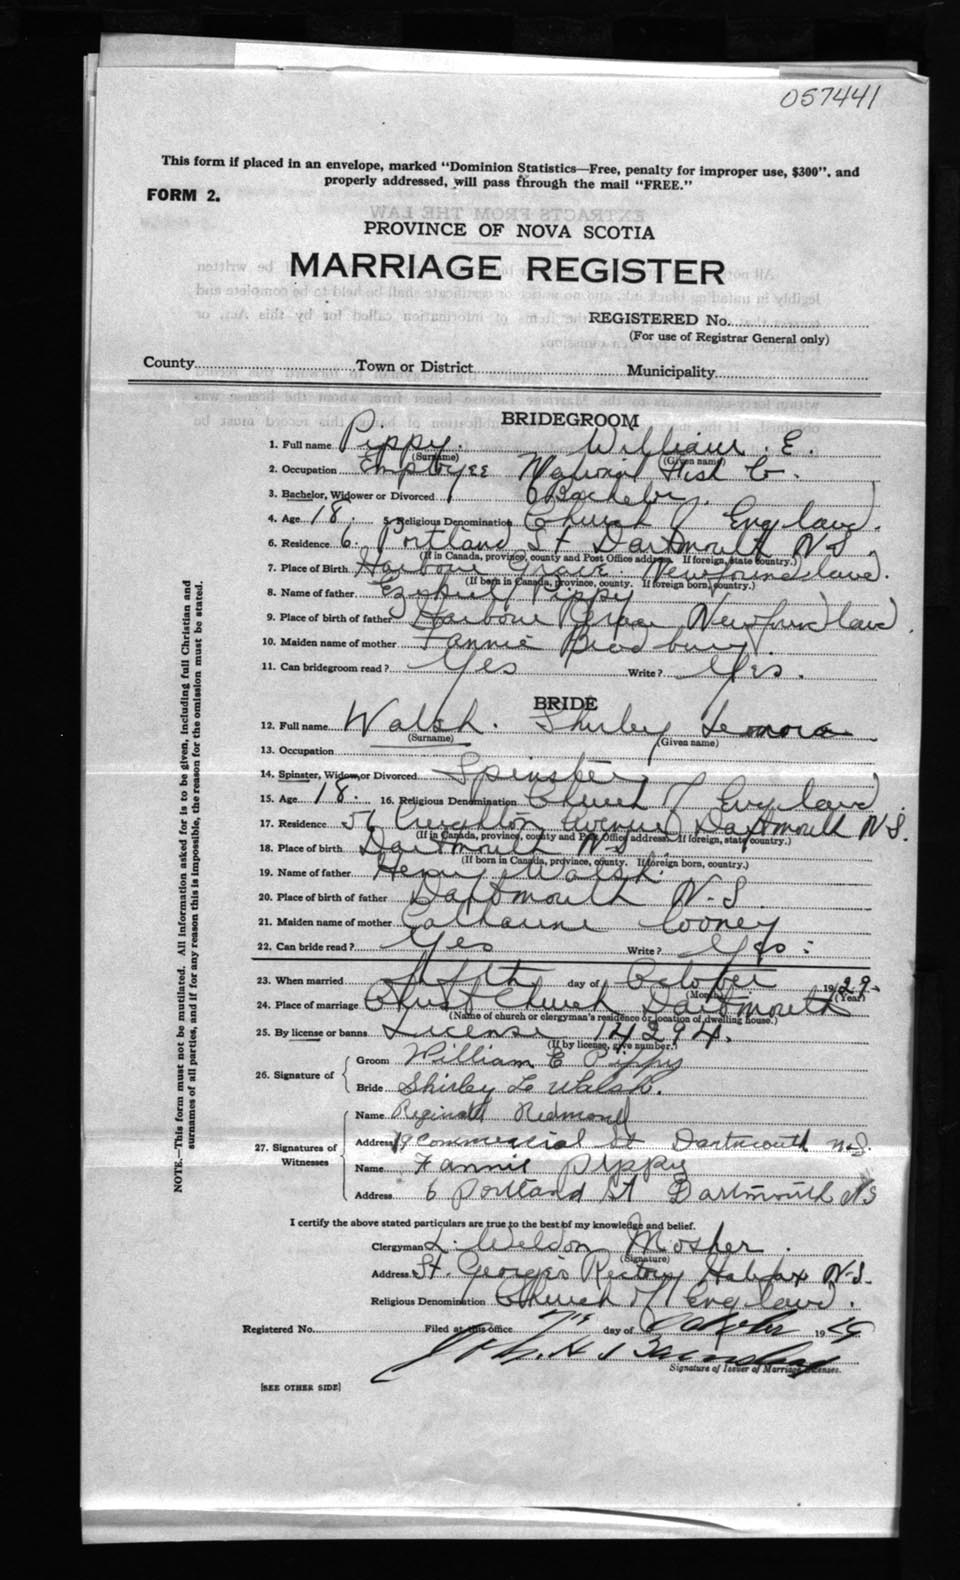 057441
This form if placed in an envelope, marked "Dominion Statistics—Free, penalty for improper use, $300", and
properly addressed, will pass through the mail "FREE."
FORM 2.
PROVINCE OF NOVA SCOTIA
MARRIAGE REGISTER
REGISTERED No.
(For use of Registrar General only)
County Town or District Municipality
BRIDEGROOM
1. Full name Pippy. William. E.
(Surname) (Given name)
2. Occupation Employee National Fish Co.
3. Bachelor, Widower or Divorced Bachelor.
4. Age 18. 5. Religious Denomination Church of England.
6. Residence 6. Portland St Dartmouth N.S.
(If in Canada, province, county and Post Office address. If foreign, state country.)
7. Place of Birth Harbour Grace Newfoundland.
(If born in Canada, province, county. If foreign born, country.)
8. Name of father Ezekiel Pippy
9. Place of birth of father Harbour Grace Newfoundland.
10. Maiden name of mother Fannie Bradbury.
11. Can bridegroom read? Yes Write? Yes.
BRIDE
12. Full name Walsh. Shirley Lenora
(Surname) (Given name)
13. Occupation
14. Spinster, Widow, or Divorced Spinster
15. Age 18. 16. Religious Denomination Church of England
17. Residence Creighton Avenue Dartmouth N.S.
(If in Canada, province, county and Post Office address. If foreign, state country.)
18. Place of birth Dartmouth N.S
(If born in Canada, province, county. If foreign born, country.)
19. Name of father Henry Walsh.
20. Place of birth of father Dartmouth N.S.
21. Maiden name of mother Catharine Cooney
22. Can bride read? Yes Write? Yes.
23. When married fifth day of October 1929.
(Month) (Year)
24. Place of marriage Christ Church Dartmouth
(Name of church or clergyman's residence or location of dwelling house.)
25. By license or banns License 14294.
(If by license, give number.)
26. Signature of
Groom William E Pippy
Bride Shirley Le Walsh.
27. Signatures of Witnesses
Name Reginald Redmond
Address 19 Commercial St Dartmouth N.S.
Name Fannie Pippy
Address 6 Portland St Dartmouth N S
I certify the above stated particulars are true to the best of my knowledge and belief.
Clergyman L. Weldon Mosher.
(Signature)
Address St. George's Rectory Halifax N.S.
Religious Denomination Church of England.
Registered No. Filed at this office 7th day of October 1929
Signature of Issuer of Marriage Licenses.
[SEE OTHER SIDE]
NOTE.—This form must not be mutilated. All information asked for is to be given, including full Christian and
surnames of all parties, and if for any reason this is impossible, the reason for the omission must be stated.